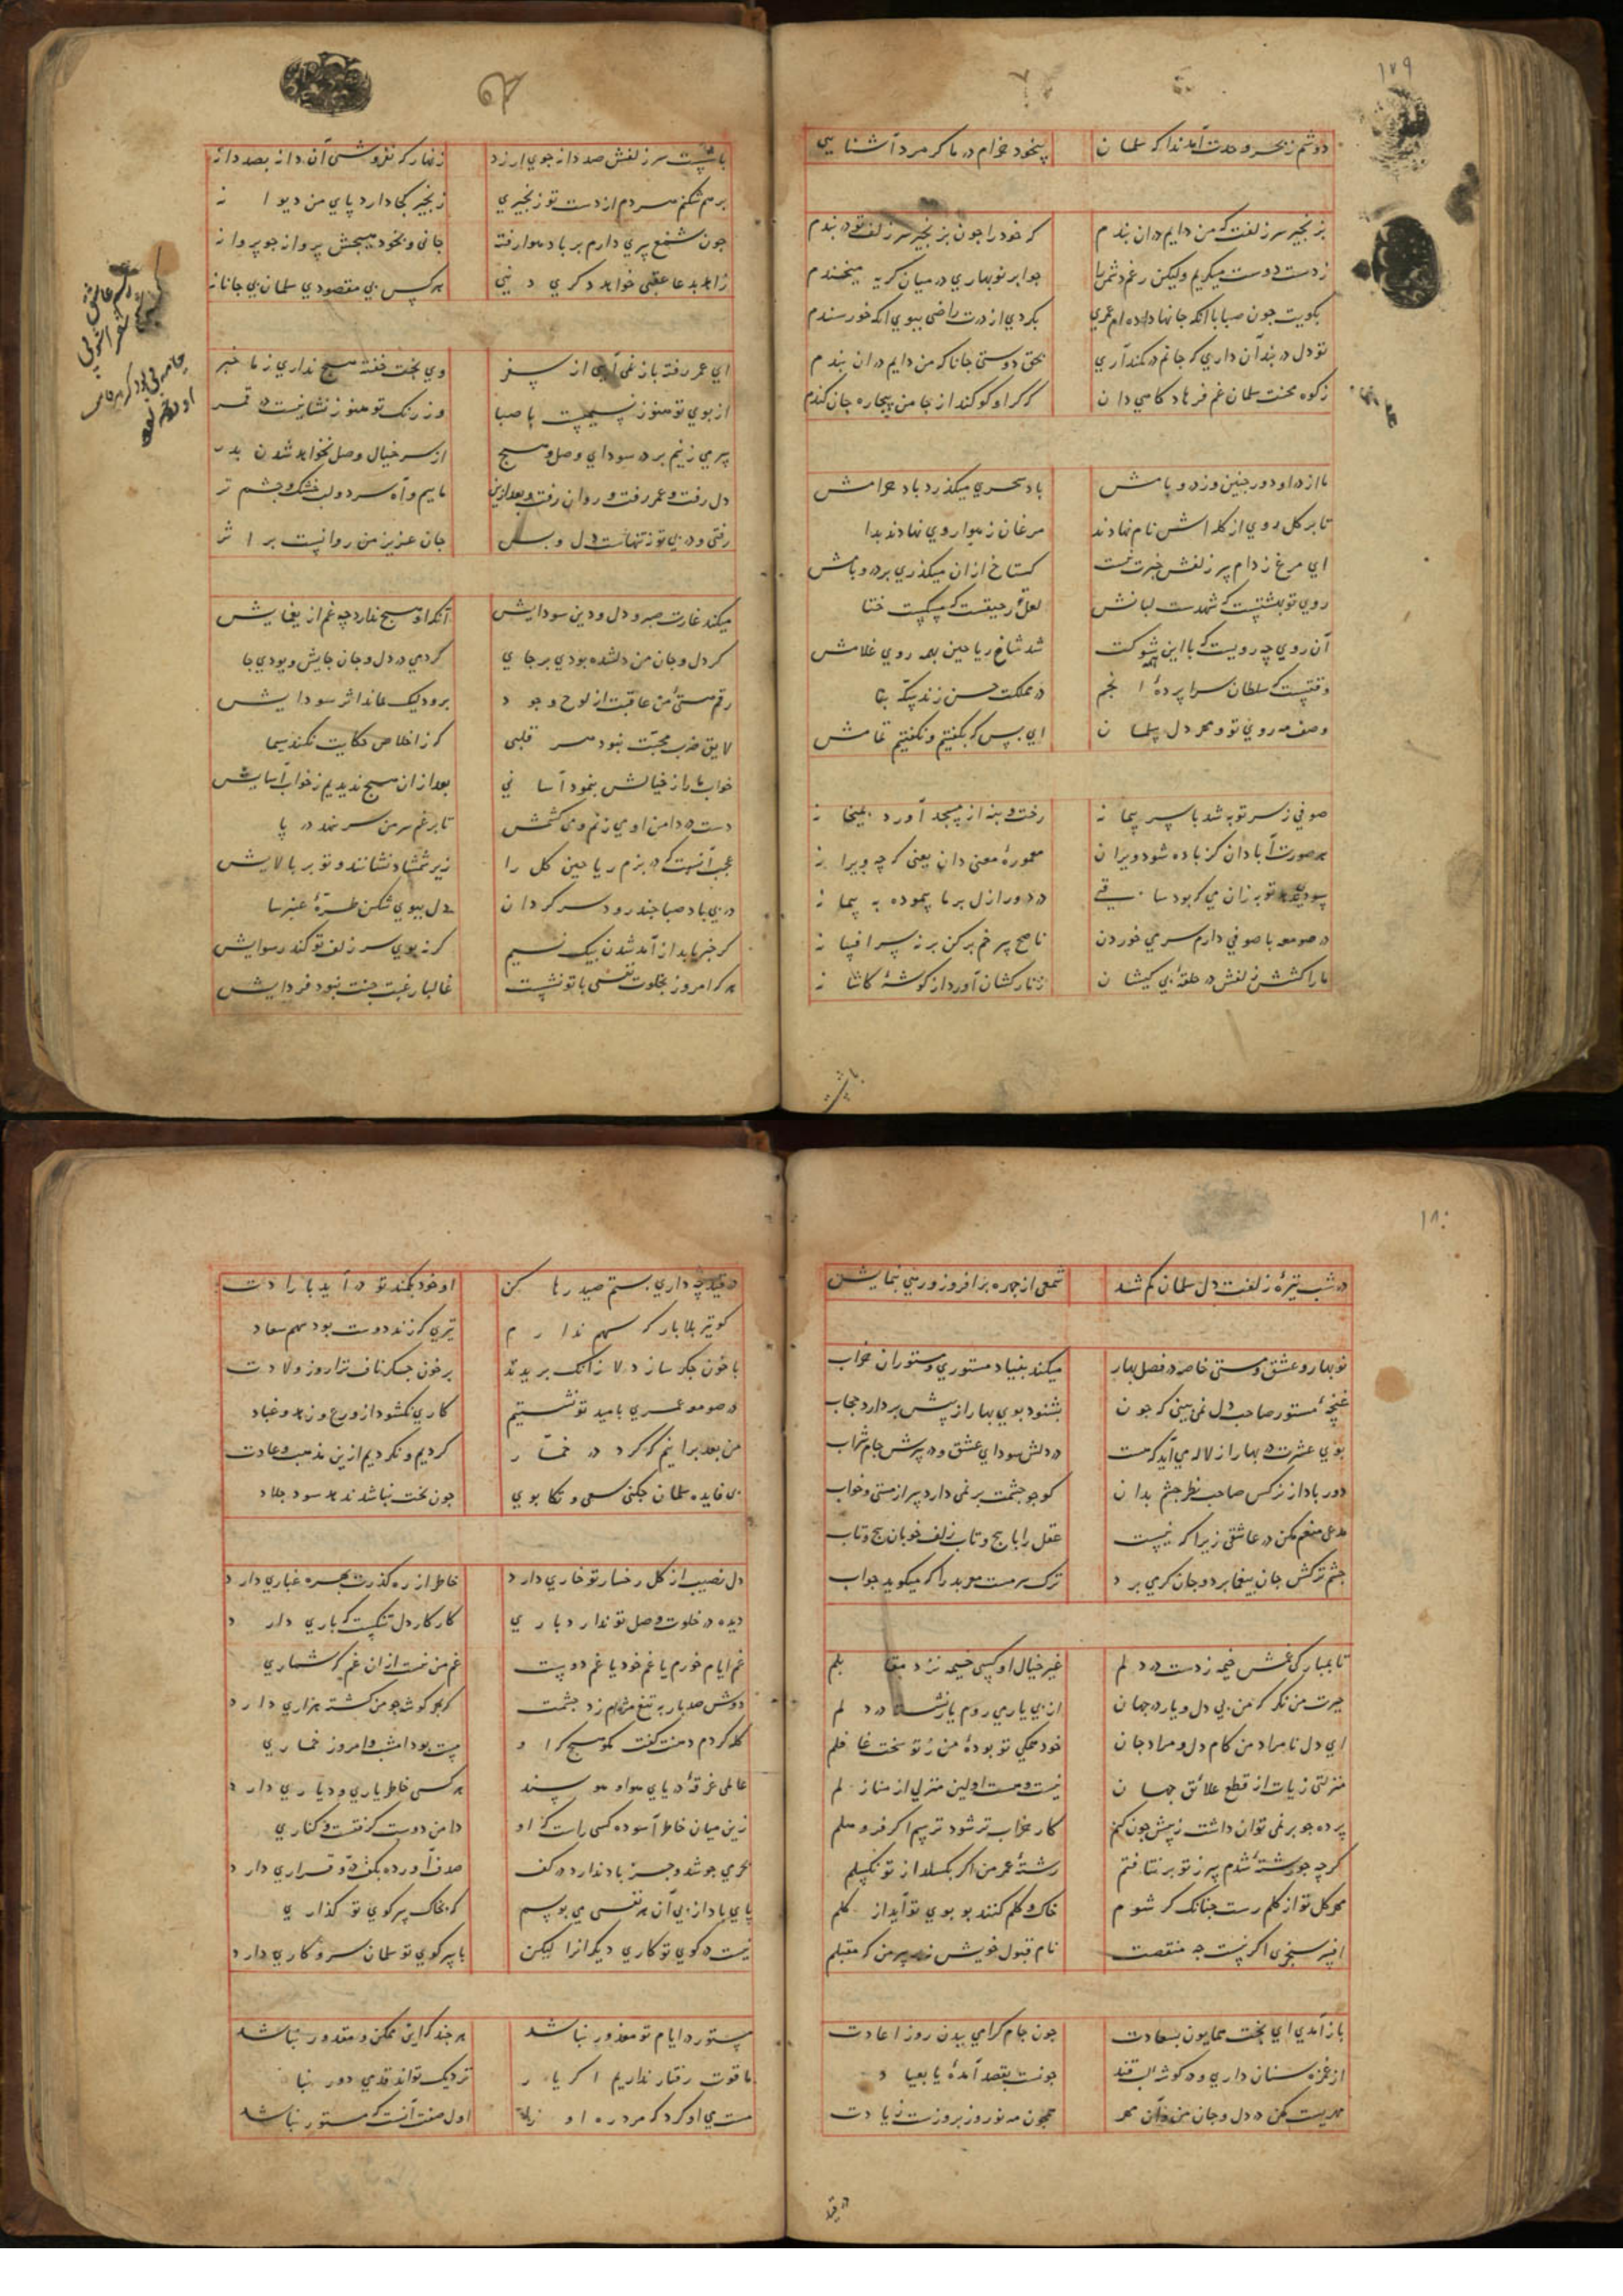 ١٧٩
دوشم ز بحر وحدت آمد ندا که سلمان بیخود خرام در ما کر مرد آشنایی
بزنجیر سر زلفت که من دایم در ان بندم که خود را چون بزنجیر سر زلف تو در بندم
ز دست دوست میکریم ولیکن رغم دشمن را چو ابر نوبهاری در میان کریه میخندم
بکویت چون صبا با آنکه جانها داده ام عمری بکردی از درت راضی ببوی آنکه خورسندم
تو دل در بند آن داری که جانم در کمند آری بحق دوستی جانا که من دایم در ان بندم
ز کوه محنت سلمان غم فرهاد کامی دان کر او کو کند از جا من بیچاره جان کندم
ما از در او دور چنین وز در و بامش باد سحری میکذرد باد حرامش
تا بر کل روی از کله اش نام نهادند مرغان ز هوا روی نهادند بدامش
ای مرغ ز دام سر زلفش خبرت نیست کستاخ از ان میکذری بر در و بامش
روی تو بهشتیست که شهدست لبانش لعل رحیقست که مسکیست ختامش
آن روی چه رویست که با این همه شوکت شد شاخ ریاحین بهمه روی غلامش
وقتیست که سلطان سراپرده انجم در مملکت حسن زند سکه بنامش
وصف مه روی تو و مهر دل سلمان ای بس که بکفتیم و نکفتیم تمامش
صوفی ز سر توبه شد با سر پیمانه رخت و بنه از مسجد آورد بمیخانه
هر صورت آبادان کز باده شود ویران معموره معنی دان یعنی که چه ویرانه
توبه زان می که بود ساقی در دور ازل بر ما پیموده به پیمانه
در صومعه با صوفی دارم سر می خوردن ناصح سر خم بر کن بر نه سر افسانه
ما را کشش زلفش در حلقه بی کیشان زنار کشان آورد از کوشه کاشانه
با
با نیست سر زلفش صد دانه جوی ارزد زنهار که نفروشی آن دانه بصد دانه
برهم شکنم هر دم از دست تو زنجیری زنجیر کجا دارد پای من دیوانه
چون شمع پری دارم بر باد هوا رفته جانی و بخود هیچش پروا نه چو پروانه
زاهد بدعا عقبی خواهد دکری دنیی هر کس بی مقصودی سلمان بی جانانه
ای عمر رفته باز نمی آیی از سفر وی بخت خفته هیچ نداری ز ما خبر
از بوی تو هنوز نسیمیست با صبا وز رنک تو هنوز نشانیست در قمر
می زنیم بر در سودای وصل و هیچ از سر خیال وصل نخواهد شدن بدر
دل رفت و عمر رفت و روان رفت و بعد ازین ماییم و آه سرد و لب خشک و چشم تر
رفتی و در پی تو نه تنهاست دل و بس جان عزیز من روانیست بر اثر
میکند غارت صبر و دل و دین سودایش آنکه او هیچ ندارد چه غم از یغمایش
کر دل و جان من دلشده بودی بر جای کردمی در دل و جان جایش و بودی جا
رقم هستی من عاقبت از لوح وجود برود لیک بماند اثر سودایش
لایق ضرب محبت نبود هر قلبی که ز اخلاص حکایت نکند سیما
خواب ما را ز خیالش بنمود آسانی بعد از ان هیچ ندیدیم ز خواب آسایش
دست در دامن او می زنم و می کشمش تا برغم سر من سر نهد در پا
عجب آنست که در بزم ریاحین کل را زیر شمشاد نشانند و تو بر بالایش
در پی باد صبا چند رود سرکردان دل ببوی شکن طره عنبرسا
کر خبر یابد از آمد شدن پیک نسیم کز پی بوی سر زلف تو کند رسوایش
هر که امروز بخلوت نفسی با تو نشست غالبا رغبت جنت نبود فردایش
١٨٠
در شب تیره زلفت دل سلمان کم شد شمعی از چهره برافروز و رهی بنمایش
نوبهار و عشق و مستی خاصه در فصل بهار میکند بنیاد مستوری مستوران خراب
غنچه مستور صاحب دل نمی بینی که چون بشنود بوی بهار از پیش بردارد حجاب
بوی عشرت در بهار از لاله می آید که هست در دلش سودای عشق و در سرش جام شراب
دور باد از نرکس صاحب نظر چشم بدان کو چو چشمت بر نمی دارد سر از مستی و خواب
مدعی منعم مکن در عاشقی زیرا که نیست عقل را با پیچ و تاب زلف خوبان پیچ و تاب
چشم ترکش جان بیغما برد و جان کر می برد ترک سرمست معربد را که میکوید جواب
تا بمبارکی غمش خیمه زدست در دلم غیر خیال او کسی خیمه نزد مقابلم
حیرت من نکر که من بی دل و یار در جهان از پی یار می روم یار نشسته در دلم
ای دل نامراد من کام دل و مراد جان خود همکی تو بوده من ز تو سخت غافلم
منزلتی زیادت از قطع علائق جهان نیست و هست اولین منزلی از منازلم
پرده چو بر نمی توان داشت ز پیش چون کنم کار خراب تر شود ترسم اکر فرو هلم
کرچه چو رشته شدم سر ز تو بر نتافتم رشته عمر من اکر بکسلد از تو نکسلم
مهر کل تو از کلم رست چنانک کر شوم خاک و کلم کنند بو بوی تو آید از کلم
افسر سنجری اکر نیست چه منقصت نام قبول خویش نه بر سر من که مقبلم
باز آمدی ای بخت همایون بسعادت چون جام کرامی ببدن روز اعادت
از غمزه سنان داری و در کوشه لب قند چونست بقصد آمده یا بعیاد
مهریست مکن در دل و جان من و آن مهر همچون مه نوروز بروزست زیادت
در قید
در قید چه داری بستم صید رها کن او خود بکمند تو در آید بارادت
کو تیر بلا بار که سهم ندارم تیری که زند دوست بود سهم سعاد
با خون جکر ساز دلا زانک بریدند بر خون جکر ناف ترا روز ولادت
در صومعه عمری بامید تو نشستیم کاری نکشود از ورع و زهد و عباد
من بعد بر اینم که کرد در خمار کردیم و نکردیم ازین مذهب و عادت
بی فایده سلمان چکنی سعی و تکاپوی چون بخت نباشد ندهد سود جلاد
دل نصیب از کل رخسار تو خاری دارد خاطر از ره کذرت بهره غباری دارد
دیده در خلوت وصل تو ندارد باری کار کار دل تنکست که باری دارد
غم ایام خورم یا غم خود یا غم دوست غم من نیست از ان غم که شماری
دوش صد بار به تیغ مژه ام زد چشمت کر بهر کوشه چو من کشته هزاری دارد
کله کردم دهنت کفت مکو هیچ کرا و مست بود امشب و امروز خماری
عالمی غرقه دریای هوا و هوسند هر کسی خاطر یاری و دیاری دارد
زین میان خاطر آسوده کسی راست که او دامن دوست کرفتست و کناری
بحری جوشد و جز باد ندارد در کف صدف آورده بکف در و قراری دارد
پای باد از پی آن هر نفسی می بوسم که بخاک سر کوی تو کذاری
نیست در کوی تو کاری دیکرانرا لیکن با سر کوی تو سلمان سر و کاری دارد
مستور در ایام تو معذور نباشد هر چند که این ممکن و مقدور نباشد
ما قوت رفتار نداریم اکر یار نزدیک تواند قدمی دور نبا
مست می او کرد که مرد ره او زیرا اول صفت آنست که مستور نباشد